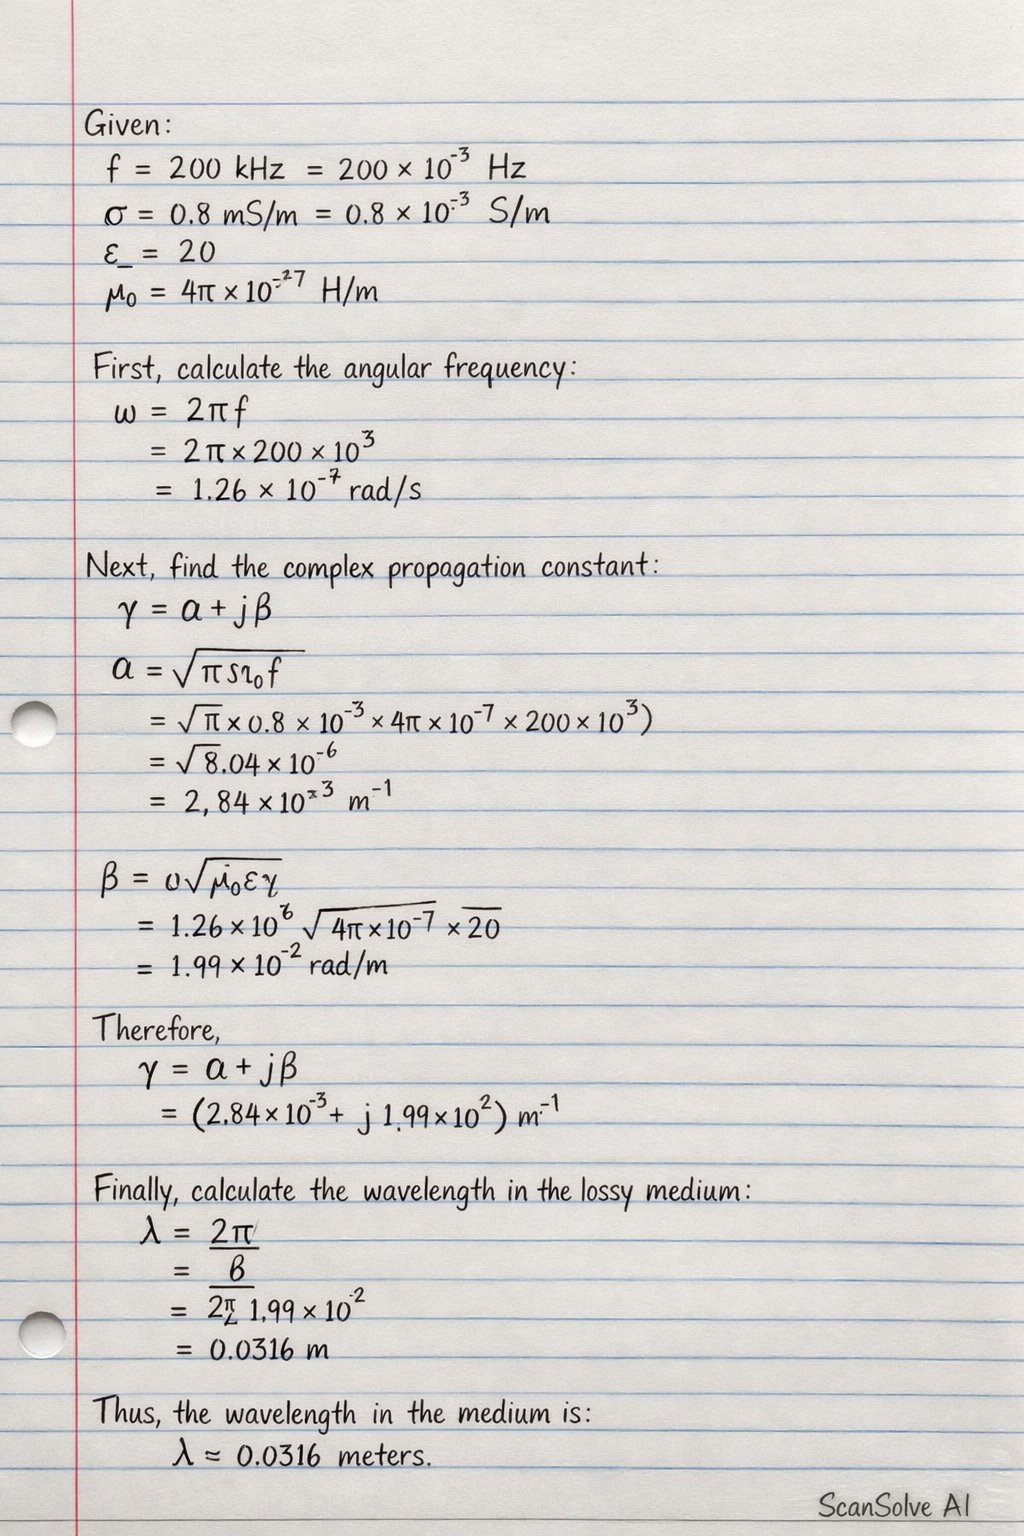 Given:
f = 200 kHz = 200 × 10⁻³ Hz
σ = 0.8 mS/m = 0.8 × 10⁻³ S/m
ε_ = 20
μ₀ = 4π × 10⁻²⁷ H/m
First, calculate the angular frequency:
ω = 2πf
= 2π × 200 × 10³
= 1.26 × 10⁻⁷ rad/s
Next, find the complex propagation constant:
γ = α + jβ
α = √π
= √π × 0.8 × 10⁻³ × 4π × 10⁻⁷ × 200 × 10³)
= √8.04 × 10⁻⁶
= 2,84 × 10 m⁻¹
β =
= 1.26 × 10 √4π × 10⁻⁷ × 20
= 1.99 × 10⁻² rad/m
Therefore,
γ = α + jβ
= (2.84 × 10⁻³ + j 1.99 × 10²) m⁻¹
Finally, calculate the wavelength in the lossy medium:
λ = 2π
= β
= 2π 1.99 × 10⁻²
= 0.0316 m
Thus, the wavelength in the medium is:
λ ≈ 0.0316 meters.
ScanSolve AI